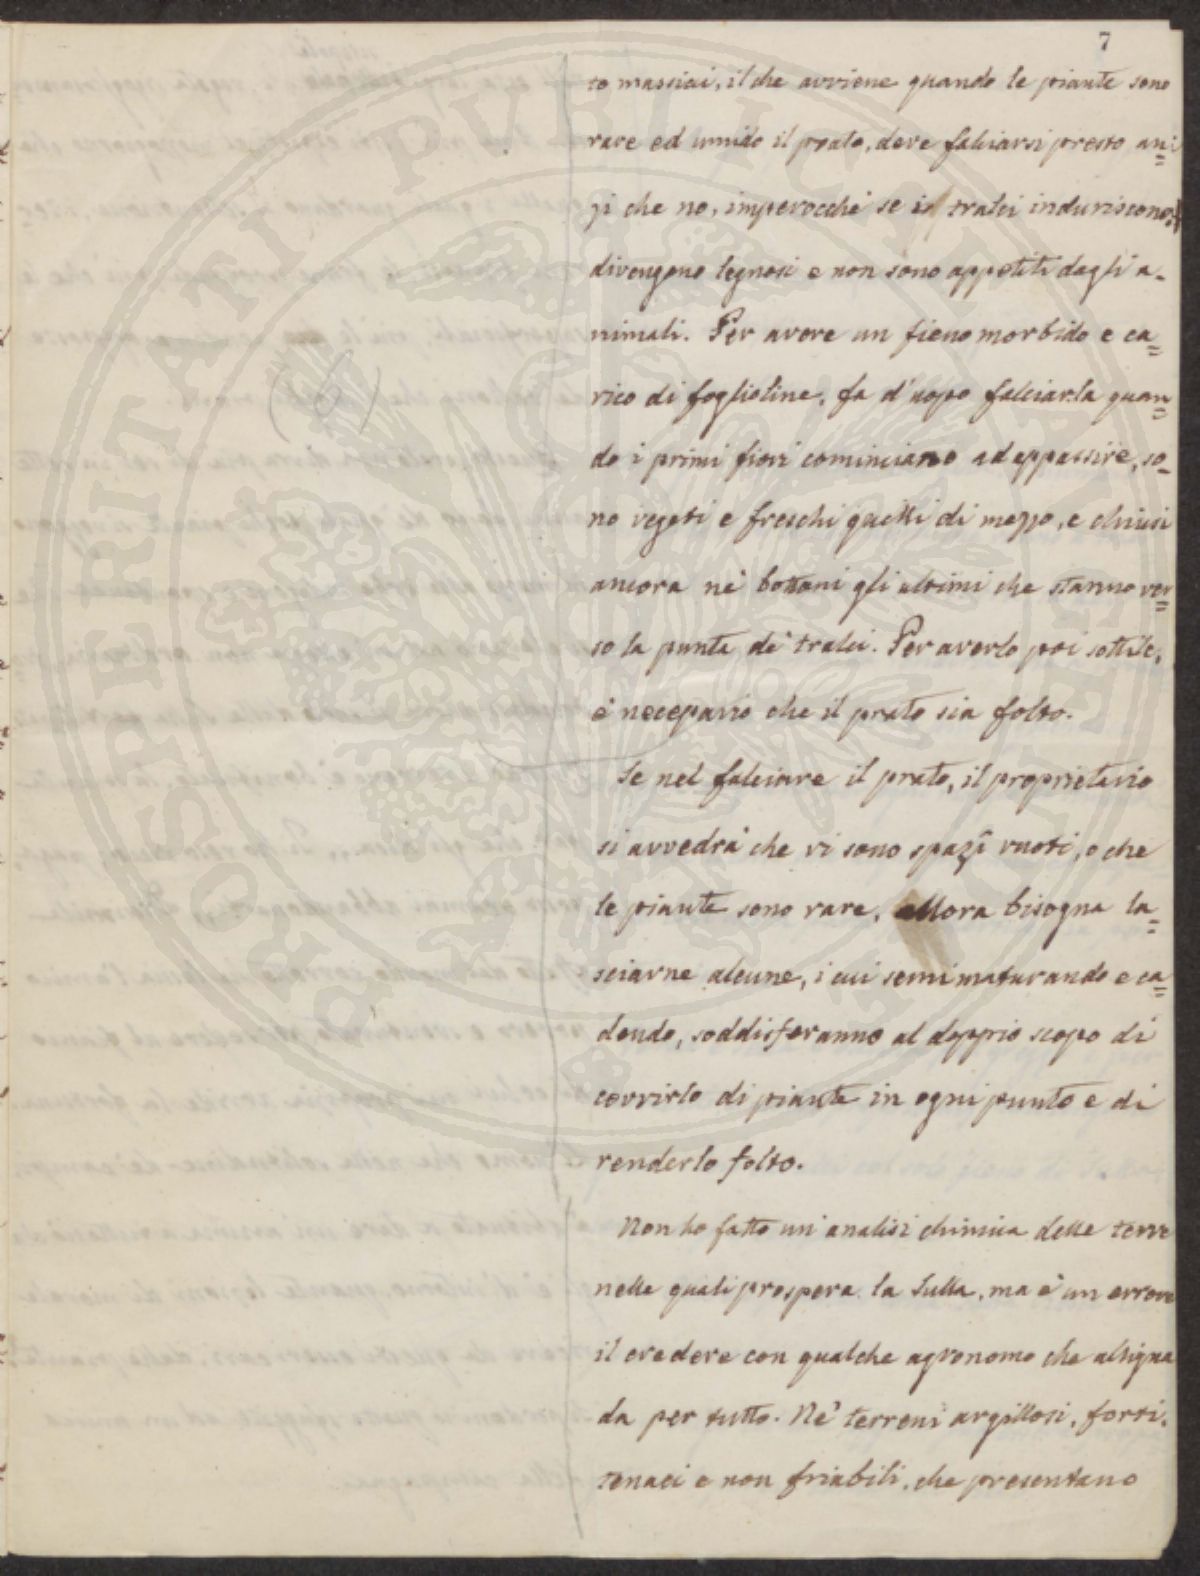 7
to massicci, il che avviene quando le piante sono
rare ed umido il prato, deve falciarsi presto an=
zi che no, imperocché se i tralci induriscono,
divengono legnosi e non sono appetiti dagli a-
nimali. Per avere un fieno morbido e ca=
rico di foglioline, fa d'uopo falciarla quan=
do i primi fiori cominciano ad appassire, so=
no vegeti e freschi quelli di mezzo, e chiusi
ancora ne' bottoni gli ultimi che stanno ver=
so la punta de' tralci. Per averlo poi sottile,
è necessario che il prato sia folto.
Se nel falciare il prato, il proprietario
si avvedrà che vi sono spazî vuoti, o che
le piante sono rare, allora bisogna la=
sciarne alcune, i cui semi maturando e ca=
dendo, soddisferanno al doppio scopo di
covrirlo di piante in ogni punto e di
renderlo folto.
Non ho fatto un'analisi chimica delle terre
nelle quali prospera la Sulla, ma è un errore
il credere con qualche agronomo che alligna
da per tutto. Ne' terreni argillosi, forti,
tenaci e non friabili, che presentano
(6)
PROSPERITATI PUBLICAE